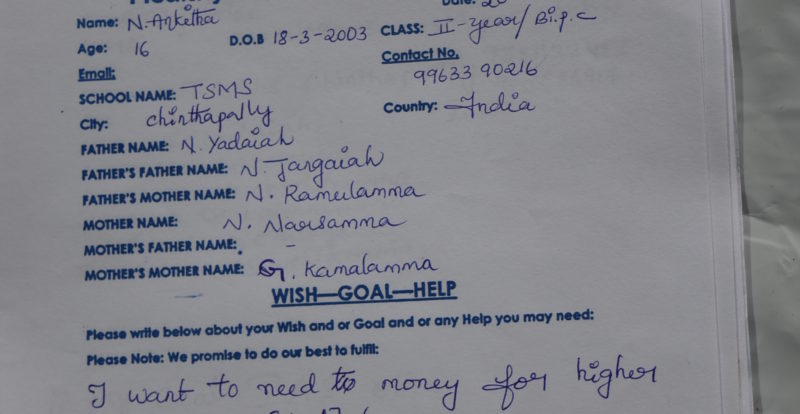 Date: 20
Name: N. Anketha
CLASS: II-year/Bi.p.c
Age: 16
D.O.B 18-3-2003
Email:
Contact No. 99633 90216
SCHOOL NAME: TSMS
City: chinthapally
Country: India
FATHER NAME: N. Yadaiah
FATHER'S FATHER NAME: N. Jangaiah
FATHER'S MOTHER NAME: N. Ramulamma
MOTHER NAME: N. Narsamma
MOTHER'S FATHER NAME: -
MOTHER'S MOTHER NAME: G. Kamalamma
WISH—GOAL—HELP
Please write below about your Wish and or Goal and or any Help you may need:
Please Note: We promise to do our best to fulfil:
I want to need to money for higher